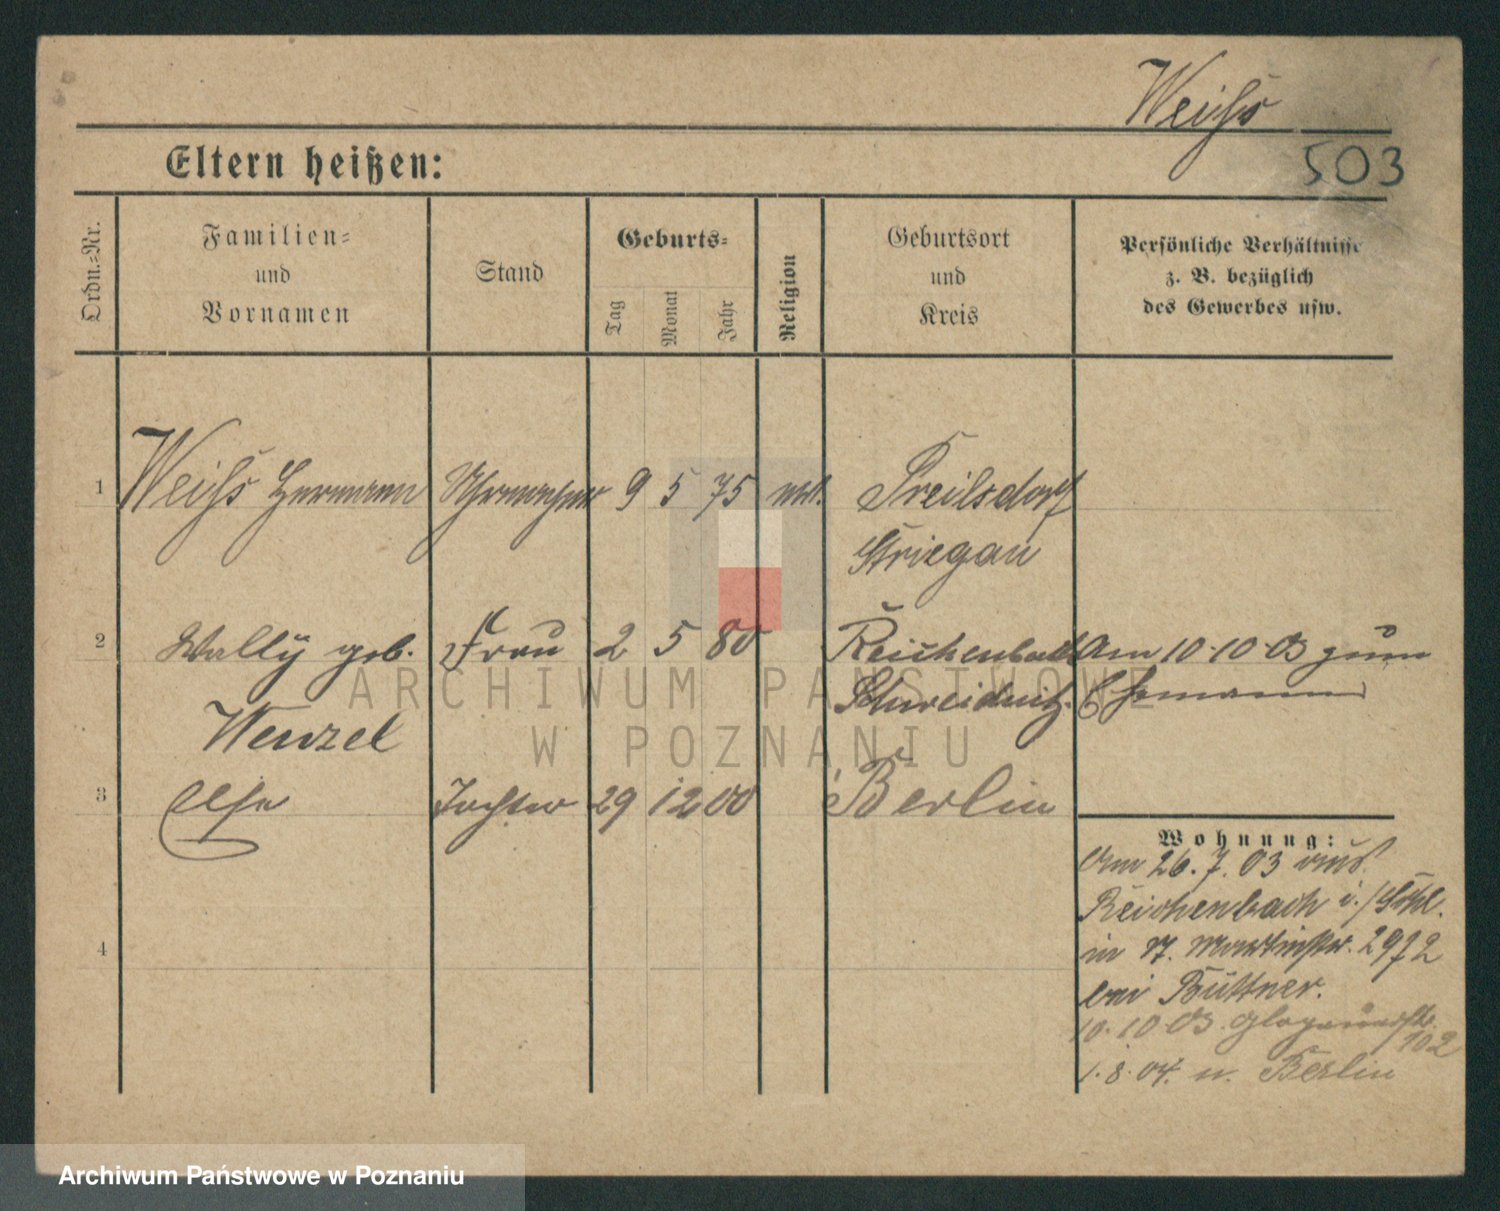 Weiß
503
Eltern heißen:
Ordn.-Nr.
Familien-
und
Vornamen
Stand
Geburts-
Tag
Monat
Jahr
Religion
Geburtsort
und
Kreis
Persönliche Verhältnisse
z. B. bezüglich
des Gewerbes usw.
1 Weiß Hermann Uhrmacher 9 5 75
Striegau
2 Wally geb. Frau 2 5 80 Reichenbach Am 10.10.03 zum
Wenzel Schweidnitz. Ehemann
3 Else Tochter 29 12 00 Berlin
Wohnung:
Am 26.7.03 aus
Reichenbach i./Schl.
in Martinstr.
bei Büttner.
10.10.03 Glogauerstr.
102
1.8.04. n. Berlin
4
ARCHIWUM PAŃSTWOWE
W POZNANIU
Archiwum Państwowe w Poznaniu